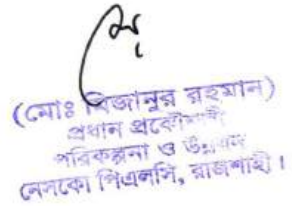 (মোঃ মিজানুর রহমান)
প্রধান প্রকৌশলী
পরিকল্পনা ও উন্নয়ন
নেসকো পিএলসি, রাজশাহী।